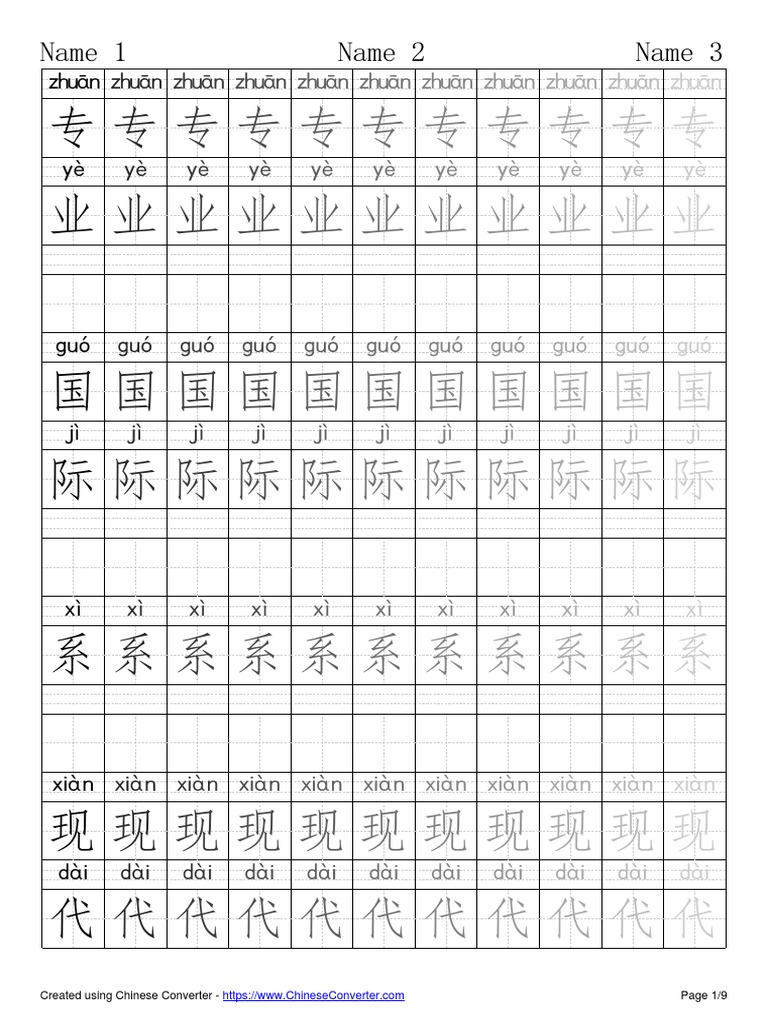 Name 1 Name 2 Name 3
zhuān zhuān zhuān zhuān zhuān zhuān zhuān zhuān zhuān zhuān zhuān
专 专 专 专 专 专 专 专 专 专 专
yè yè yè yè yè yè yè yè yè yè yè
业 业 业 业 业 业 业 业 业 业 业
guó guó guó guó guó guó guó guó guó guó guó
国 国 国 国 国 国 国 国 国 国 国
jì jì jì jì jì jì jì jì jì jì jì
际 际 际 际 际 际 际 际 际 际 际
xì xì xì xì xì xì xì xì xì xì xì
系 系 系 系 系 系 系 系 系 系 系
xiàn xiàn xiàn xiàn xiàn xiàn xiàn xiàn xiàn xiàn xiàn
现 现 现 现 现 现 现 现 现 现 现
dài dài dài dài dài dài dài dài dài dài dài
代 代 代 代 代 代 代 代 代 代 代
Created using Chinese Converter - https://www.ChineseConverter.com Page 1/9